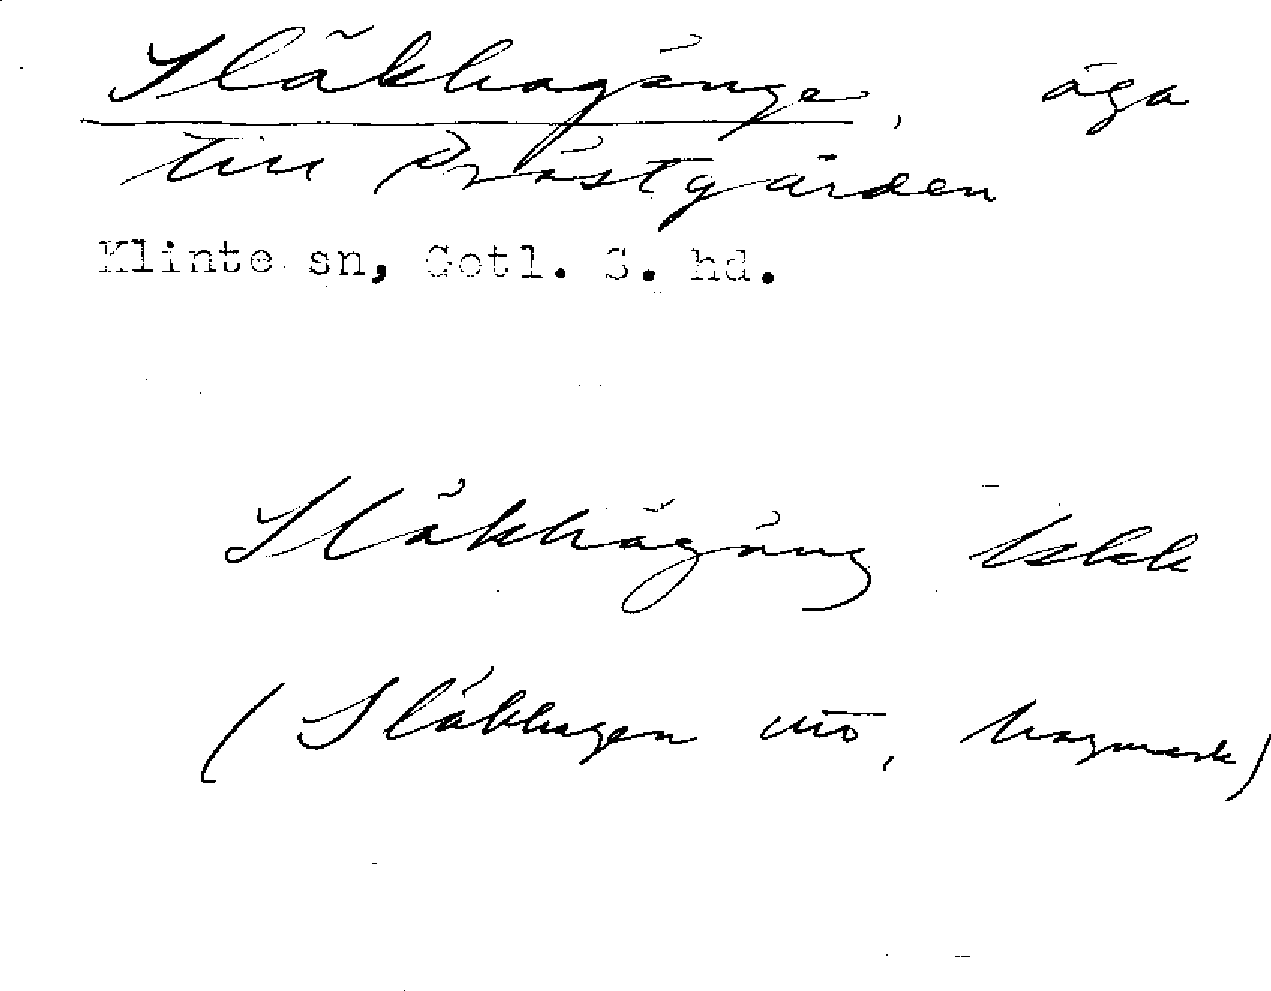 Släkhagänge, äga
till Prästgården
Klinte sn, Gotl. S. hd.
Släkhagäng
(Släkhagen utö, hagmark)